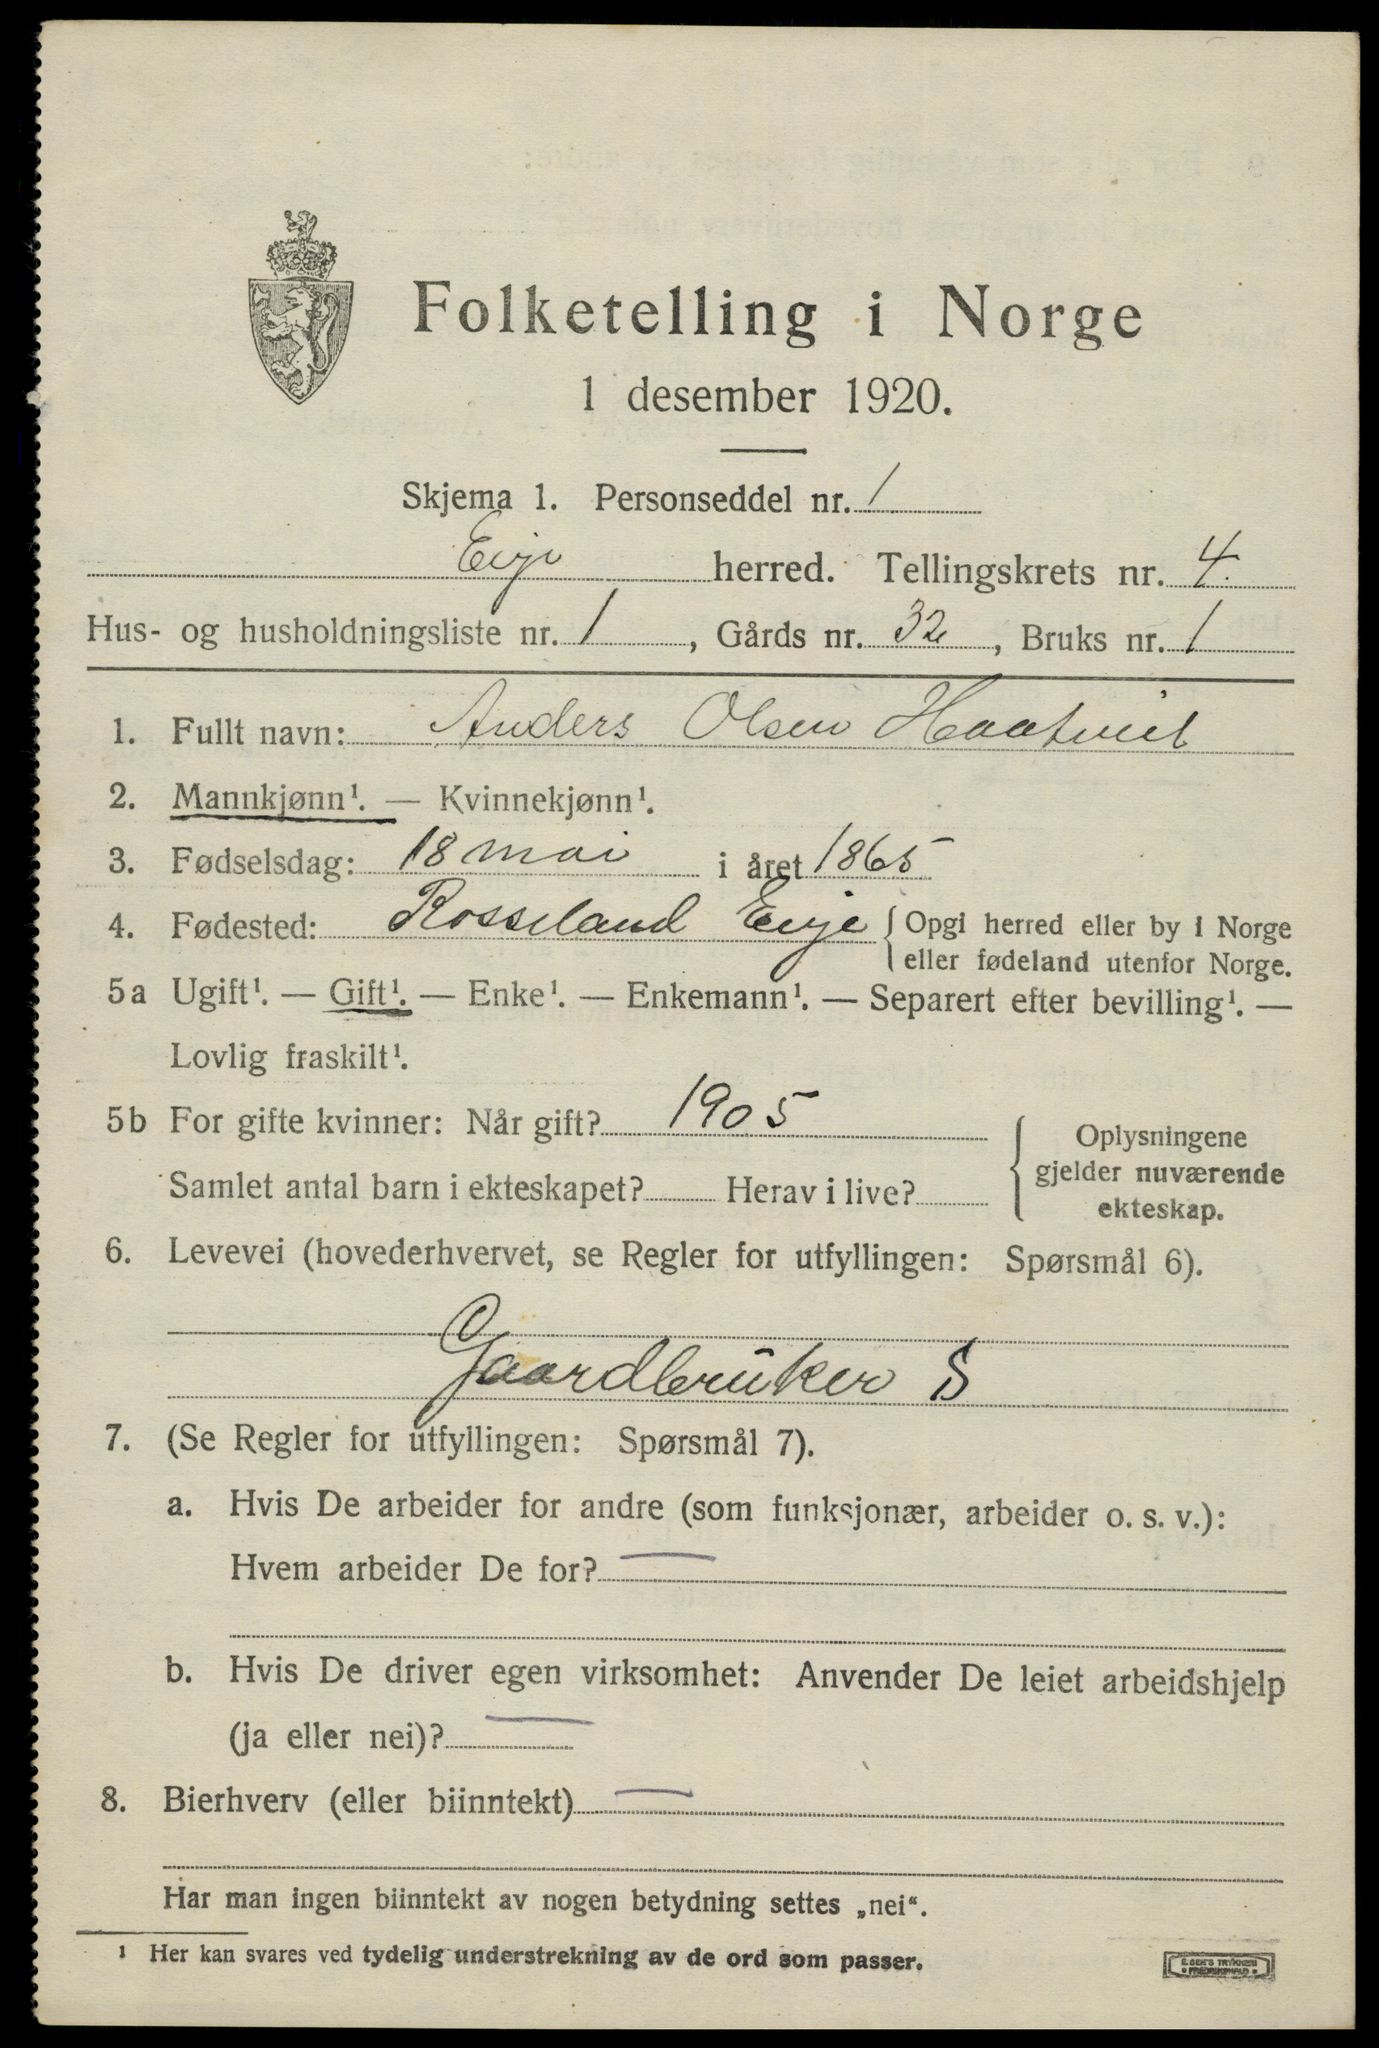 Folketelling i Norge
1 desember 1920.
Skjema 1. Personseddel nr. 1
Evje herred. Tellingskrets nr. 4.
Hus- og husholdningsliste nr. 1, Gårds nr. 32, Bruks nr. 1
1. Fullt navn: Anders Olsen
2. Mannkjønn¹. — Kvinnekjønn¹.
3. Fødselsdag: 18 mai i året 1865
4. Fødested: Rosseland Evje { Opgi herred eller by i Norge
eller fødeland utenfor Norge.
5a Ugift¹. — Gift¹. — Enke¹. — Enkemann¹. — Separert efter bevilling¹. —
Lovlig fraskilt¹.
5b For gifte kvinner: Når gift? 1905
Samlet antal barn i ekteskapet? Herav i live?
{ Oplysningene
gjelder nuværende
ekteskap.
6. Levevei (hovederhvervet, se Regler for utfyllingen: Spørsmål 6).
Gaardbruker S
7. (Se Regler for utfyllingen: Spørsmål 7).
a. Hvis De arbeider for andre (som funksjonær, arbeider o. s. v.):
Hvem arbeider De for? —
b. Hvis De driver egen virksomhet: Anvender De leiet arbeidshjelp
(ja eller nei)? —
8. Bierhverv (eller biinntekt) —
Har man ingen biinntekt av nogen betydning settes „nei“.
¹ Her kan svares ved tydelig understrekning av de ord som passer.